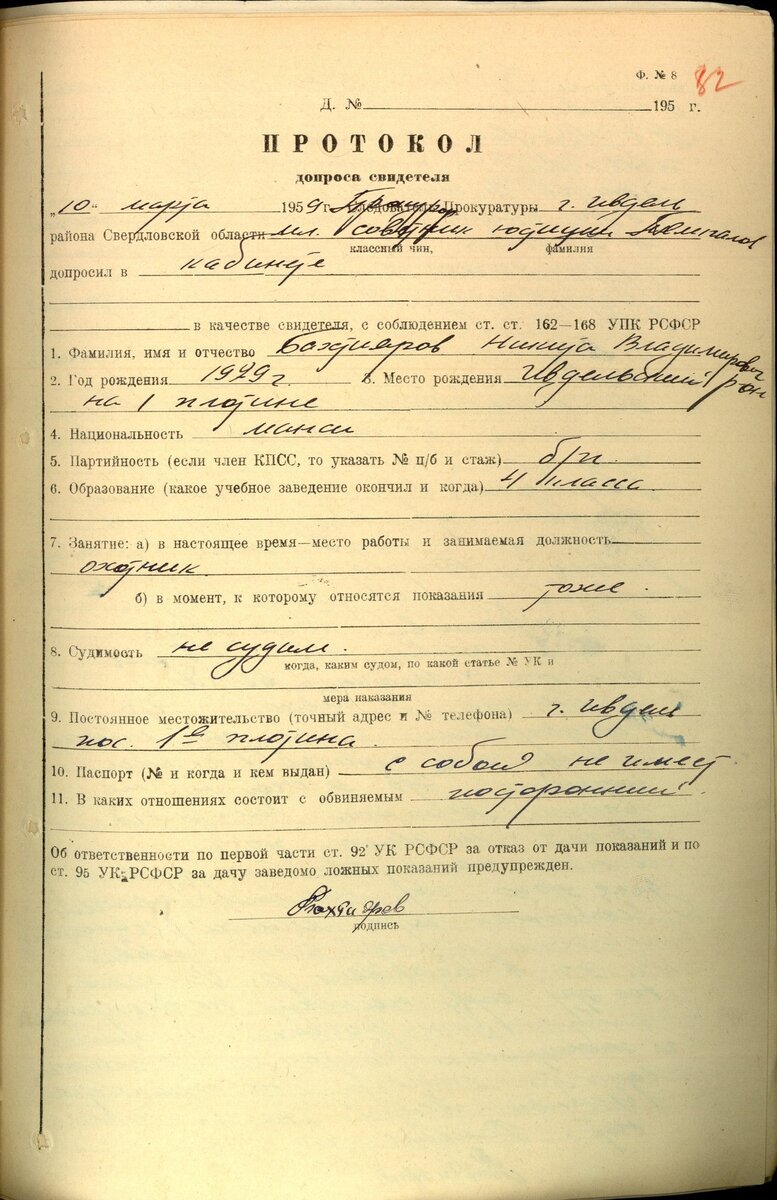 Ф. № 8 82
Д. № 195 г.
ПРОТОКОЛ
допроса свидетеля
„10“ марта 1959 г. Следователь Прокуратуры г. Ивдель
района Свердловской области мл. советник юстиции Темпалов
классный чин, фамилия
допросил в кабинете
в качестве свидетеля, с соблюдением ст. ст. 162—168 УПК РСФСР
1. Фамилия, имя и отчество Бахтияров Никита Владимирович
2. Год рождения 1929 г. 3. Место рождения Ивдельский р-он
на 1 плотине
4. Национальность манси
5. Партийность (если член КПСС, то указать № п/б и стаж) б/п.
6. Образование (какое учебное заведение окончил и когда) 4 класса
7. Занятие: а) в настоящее время—место работы и занимаемая должность
охотник
б) в момент, к которому относятся показания тоже.
8. Судимость не судим.
когда, каким судом, по какой статье № УК и
мера наказания
9. Постоянное местожительство (точный адрес и № телефона) г. Ивдель
пос. 1я плотина.
10. Паспорт (№ и когда и кем выдан) с собой не имеет.
11. В каких отношениях состоит с обвиняемым посторонний.
Об ответственности по первой части ст. 92 УК РСФСР за отказ от дачи показаний и по
ст. 95 УК РСФСР за дачу заведомо ложных показаний предупрежден.
Бахтияров
подпись